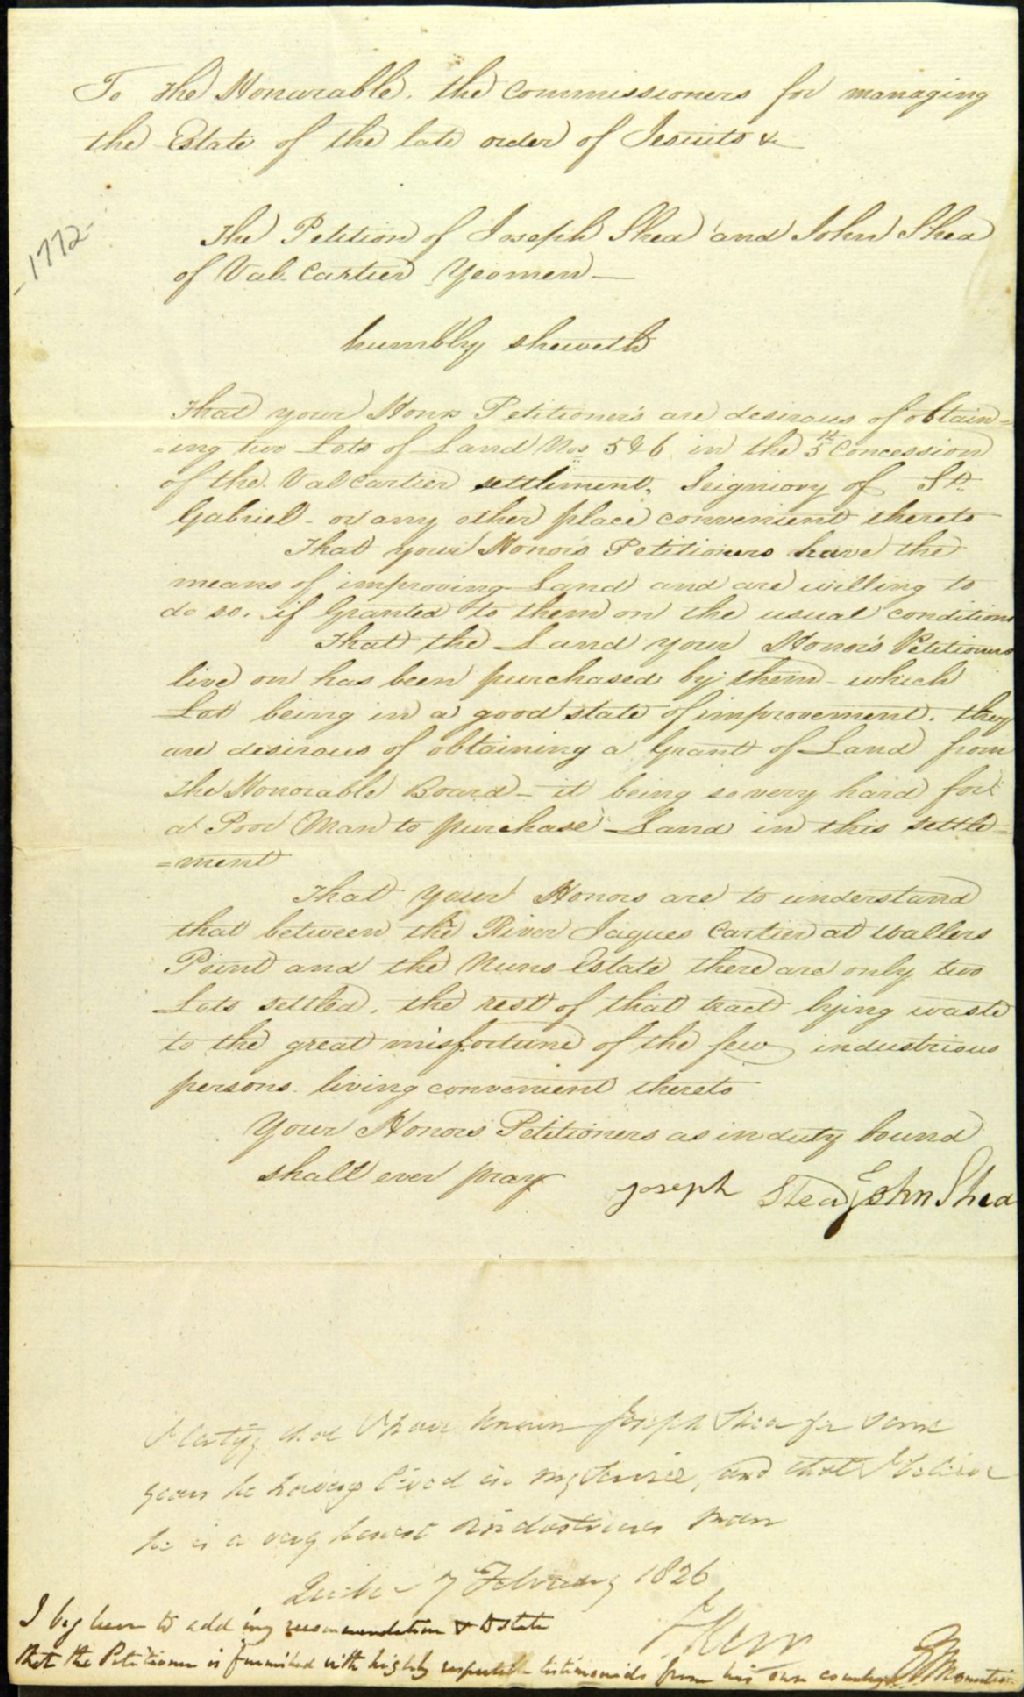 To the Honourable, the Commissioners for managing
the Estate of the late order of Jesuits &c
1772
The Petition of Joseph Shea and John Shea
of Val-Cartier Yeomen
humbly sheweth
That your Honrs Petitioners are desirous of obtain=
=ing two Lots of Land Nos 5 & 6 in the 5th Concession
of the Valcartier settlement, Seigniory of St
Gabriel - or any other place convenient thereto
That your Honors Petitioners have the
means of improving Land and are willing to
do so, if Granted to them on the usual conditions
That the Land your Honors Petitioners
live on has been purchased by them - which
Lot being in a good state of improvement. they
are desirous of obtaining a Grant of Land from
the Honorable Board - it being so very hard for
a Poor Man to purchase Land in this settle=
=ment
That your Honors are to understand
that between the River Jaques Cartier at Wallers
Point and the Nuns Estate there are only two
Lots settled, the rest of that tract lying waste
to the great misfortune of the few industrious
persons living convenient thereto
Your Honors Petitioners as in duty bound
shall ever pray
Joseph Shea John Shea
I certify that I have known Joseph Shea for some
years he having lived in my service, and that I believe
he is a very honest industrious man
Quebec 7 February 1826
I beg leave to add my recommendation & to state
that the Petitioner is furnished with highly respectable testimonials from his own country